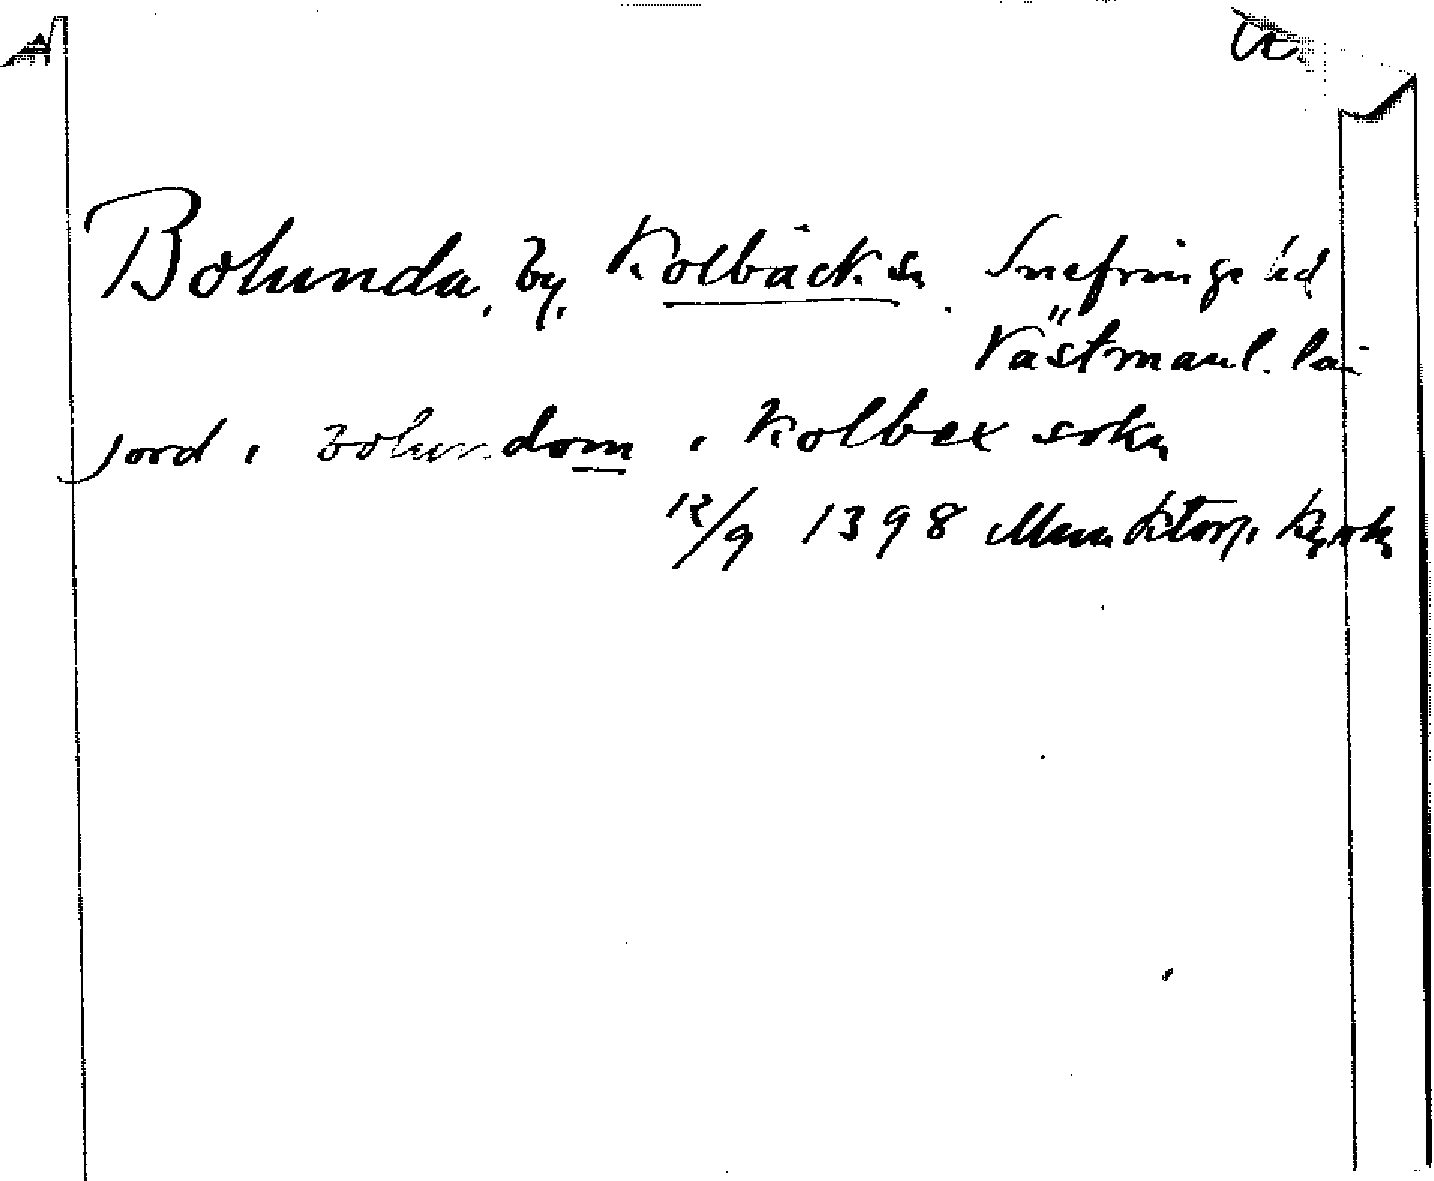 Bolunda, by, Kolbäck sn. Snefringe hd
Västmanl. län
jord i bolundom i Kolbex sokn
12/9 1398 Munktorp